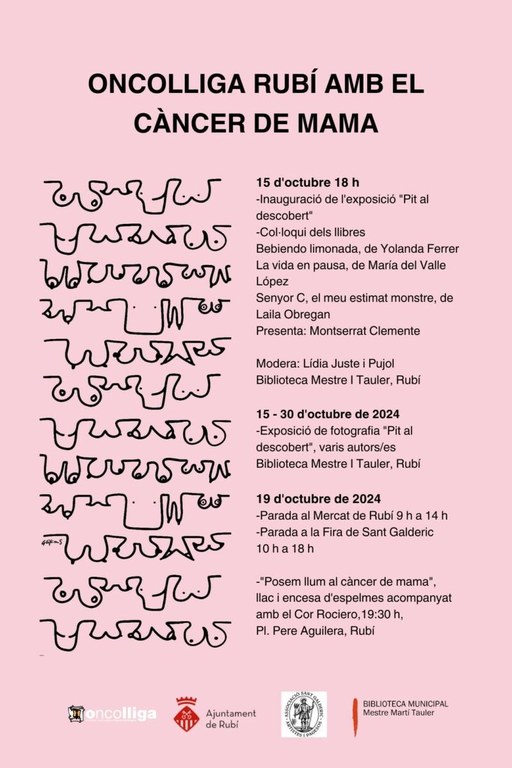 ONCOLLIGA RUBÍ AMB EL
CÀNCER DE MAMA
15 d'octubre 18 h
-Inauguració de l'exposició "Pit al
descobert"
-Col·loqui dels llibres
Bebiendo limonada, de Yolanda Ferrer
La vida en pausa, de María del Valle
López
Senyor C, el meu estimat monstre, de
Laila Obregan
Presenta: Montserrat Clemente
Modera: Lídia Juste i Pujol
Biblioteca Mestre I Tauler, Rubí
15 - 30 d'octubre de 2024
-Exposició de fotografia "Pit al
descobert", varis autors/es
Biblioteca Mestre I Tauler, Rubí
19 d'octubre de 2024
-Parada al Mercat de Rubí 9 h a 14 h
-Parada a la Fira de Sant Galderic
10 h a 18 h
-"Posem llum al càncer de mama",
llac i encesa d'espelmes acompanyat
amb el Cor Rociero,19:30 h,
Pl. Pere Aguilera, Rubí
oncolliga
Ajuntament
de Rubí
BIBLIOTECA MUNICIPAL
Mestre Martí Tauler